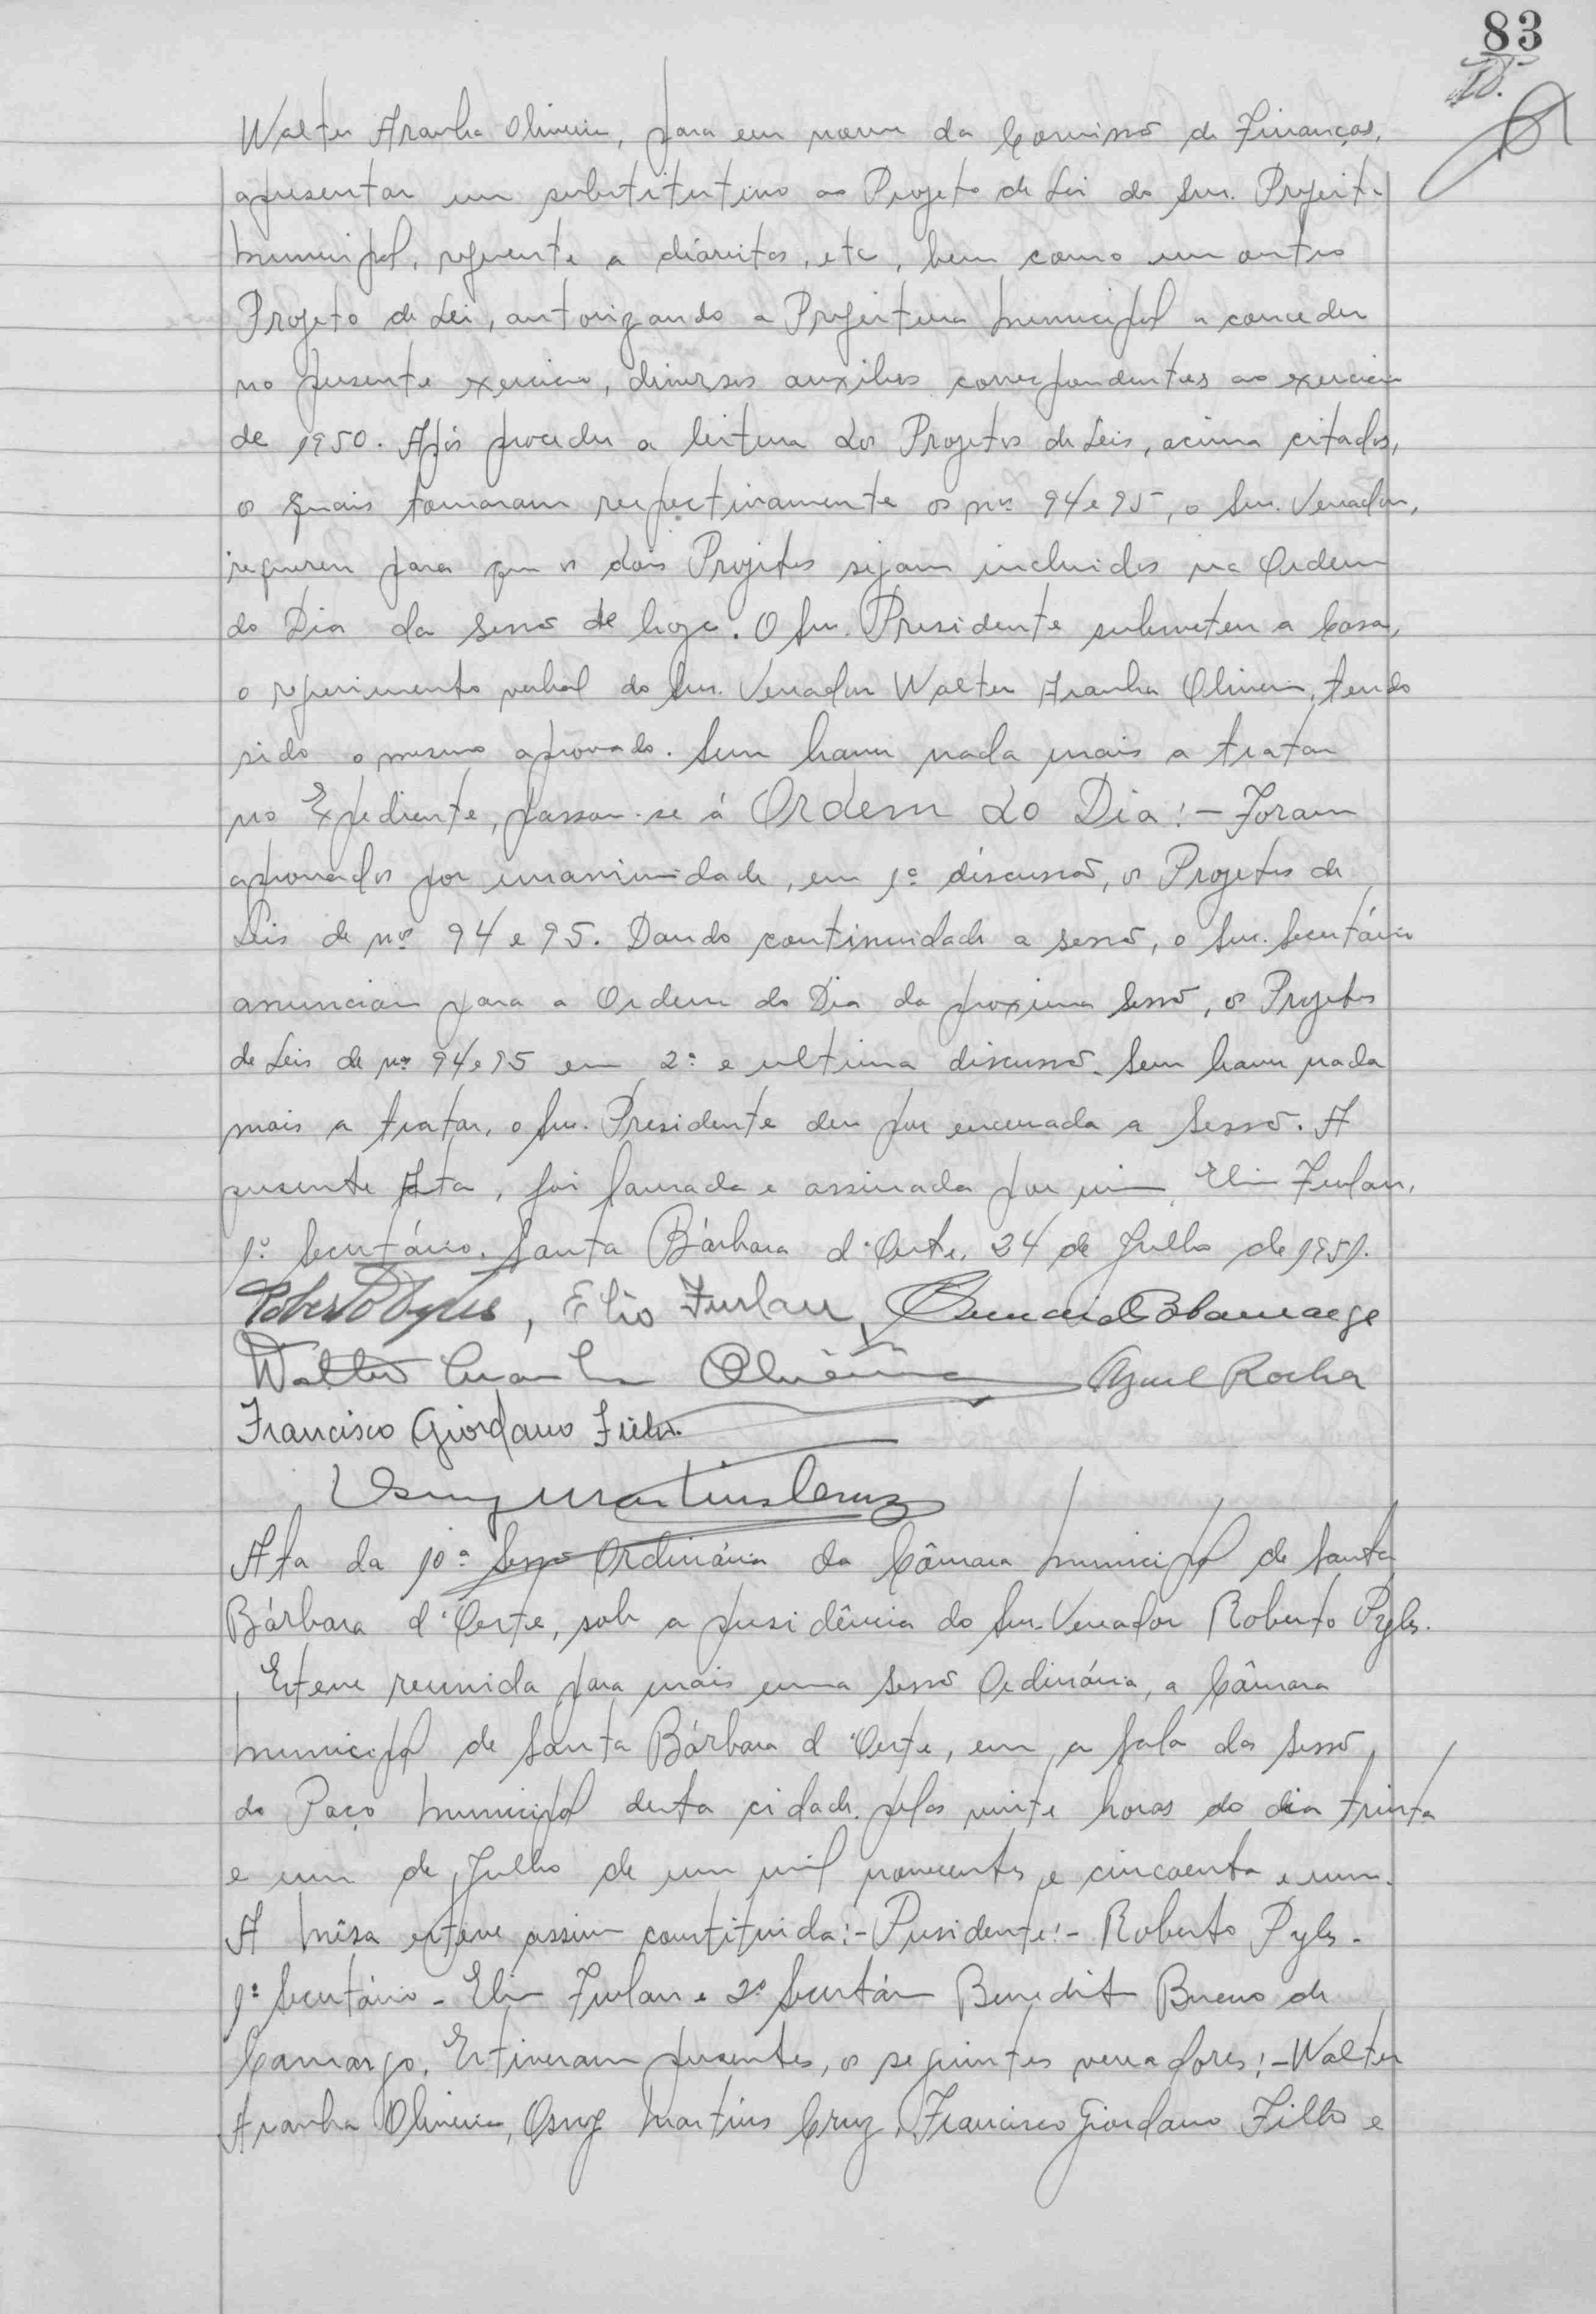 83
Walter Aranha Oliveira, para em nome da Comissão de Finanças,
apresentar um substitutivo ao Projeto de Lei do Snr. Prefeito
Municipal, referente a diáritas, etc, bem como um outro
Projeto de Lei, autorizando a Prefeitura Municipal a conceder
no presente exercicio, diversos auxilios correspondentes ao exercicio
de 1950. Após proceder a leitura dos Projetos de Leis, acima citados,
o quais tomaram respectivamente os nºs 94 e 95, o Snr. Vereador,
requereu para que os dois Projetos sejam incluidos na Ordem
do Dia da sessão de hoje. O Snr. Presidente submeteu a Casa,
o requerimento verbal do Snr. Vereador Walter Aranha Oliveira, tendo
sido o mesmo aprovado. Sem haver nada mais a tratar
no Expediente, passou-se á Ordem do Dia:- Foram
aprovados por unanimidade, em 1ª discussão, os Projetos de
Leis de nºs 94 e 95. Dando continuidade a sessão, o Snr. Secretário
anunciou para a Ordem do Dia da proxima sessão, os Projetos
de Leis de nºs 94 e 95 em 2ª e ultima discussão. Sem haver nada
mais a tratar, o Snr. Presidente deu por encerrada a Sessão. A
presente Ata, foi lavrada e assinada por mim, Elio Furlan,
1º Secretário. Santa Bárbara d'Oeste, 24 de Julho de 1951.
Roberto Pyles, Elio Furlan,
Walter Aranha Oliveira Rocha
Francisco Giordano Filho.
Osny Martins Cruz
Ata da 10ª Sessão Ordinária da Câmara Municipal de Santa
Bárbara d'Oeste, sob a presidência do Snr. Vereador Roberto Pyles.
Esteve reunida para mais uma sessão Ordinária, a Câmara
Municipal de Santa Bárbara d'Oeste, em a sala das sessão,
do Paço Municipal desta cidade, pelas vinte horas do dia trinta
e um de Julho de um mil novecentos e cincoenta e um.
A Mêsa esteve assim constituida:- Presidente:- Roberto Pyles -
1º Secretário - Elio Furlan e 2º Secretário Benedito Bueno de
Camargo. Estiveram presentes, os seguintes vereadores:- Walter
Aranha Oliveira, Osny Martins Cruz, Francisco Giordano Filho e